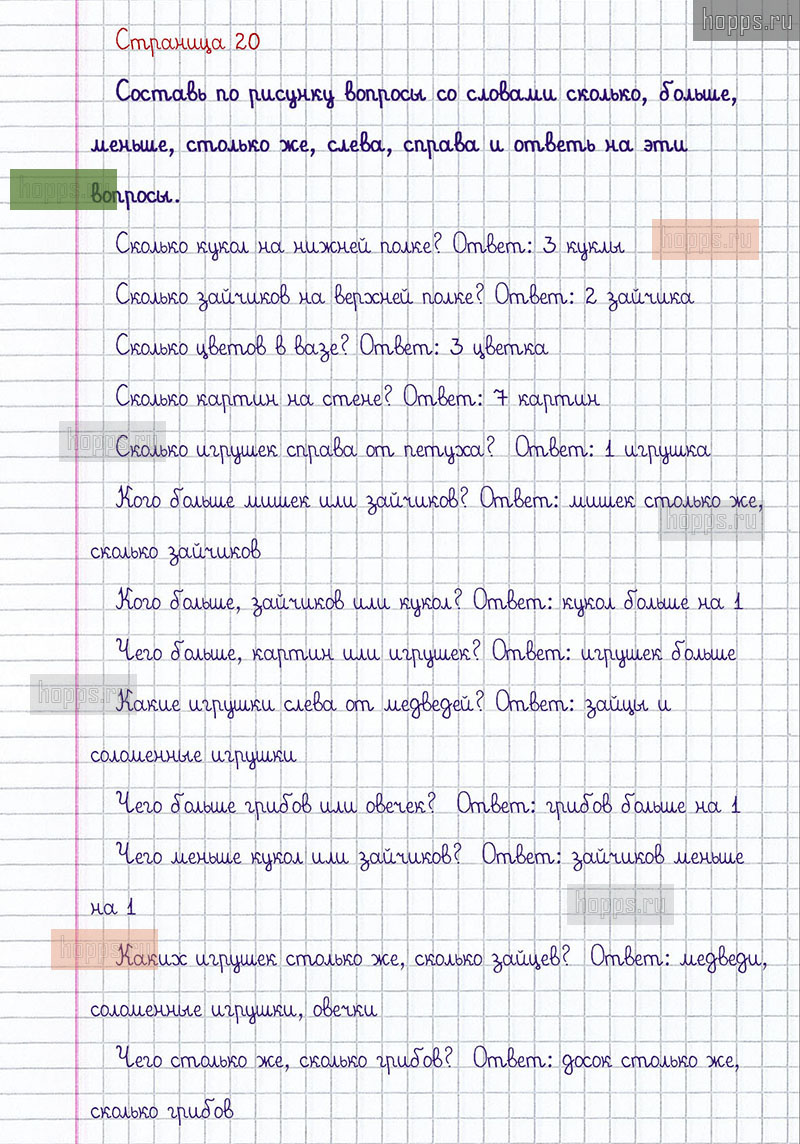 hopps.ru
Страница 20
Составь по рисунку вопросы со словами сколько, больше,
меньше, столько же, слева, справа и ответь на эти
hopps.ru
вопросы.
Сколько кукол на нижней полке? Ответ: 3 куклы
hopps.ru
Сколько зайчиков на верхней полке? Ответ: 2 зайчика
Сколько цветов в вазе? Ответ: 3 цветка
Сколько картин на стене? Ответ: 7 картин
hopps.ru
Сколько игрушек справа от петуха? Ответ: 1 игрушка
Кого больше мишек или зайчиков? Ответ: мишек столько же,
hopps.ru
сколько зайчиков
Кого больше, зайчиков или кукол? Ответ: кукол больше на 1
Чего больше, картин или игрушек? Ответ: игрушек больше
hopps.ru
Какие игрушки слева от медведей? Ответ: зайцы и
соломенные игрушки
Чего больше грибов или овечек? Ответ: грибов больше на 1
Чего меньше кукол или зайчиков? Ответ: зайчиков меньше
на 1
hopps.ru
hopps.ru
Каких игрушек столько же, сколько зайцев? Ответ: медведи,
соломенные игрушки, овечки
Чего столько же, сколько грибов? Ответ: досок столько же,
сколько грибов